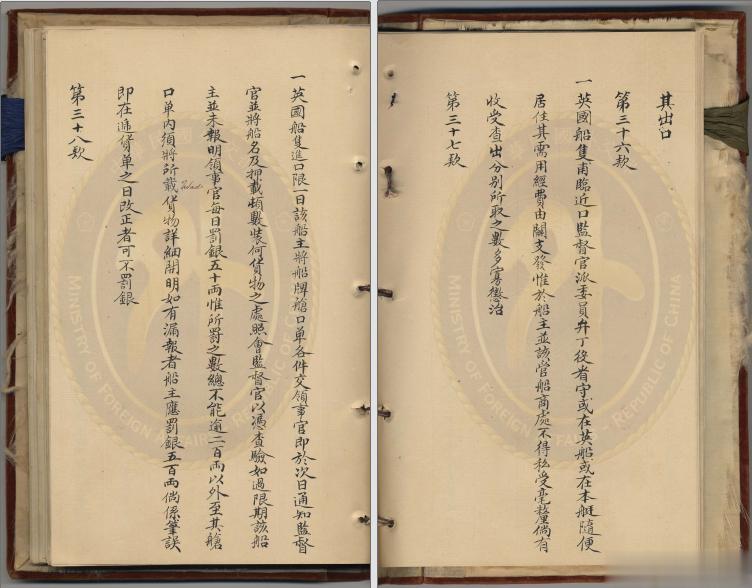 其出口
第三十六款
一英國船隻甫臨近口監督官派委員弁丁役看守或在英船或在本艇隨便
居住其需用經費由關支發惟於船主並該管船商處不得私受毫釐倘有
收受查出分別所取之數多寡懲治
第三十七款
一英國船隻進口限一日該船主將船牌艙口单各件交領事官即於次日通知監督
官並將船名及押載頓數裝何貨物之處照會監督官以凴查驗如過限期該船
主並未報明領事官每日罰銀五十両惟所罰之數總不能逾二百両以外至其艙
口单内須將所載貨物詳細開明如有漏報者船主應罰銀五百両倘係筆誤
即在遞貨单之日改正者可不罰銀
第三十八款
MINISTRY OF FOREIGN AFFAIRS REPUBLIC OF CHINA
MINISTRY OF FOREIGN AFFAIRS REPUBLIC OF CHINA